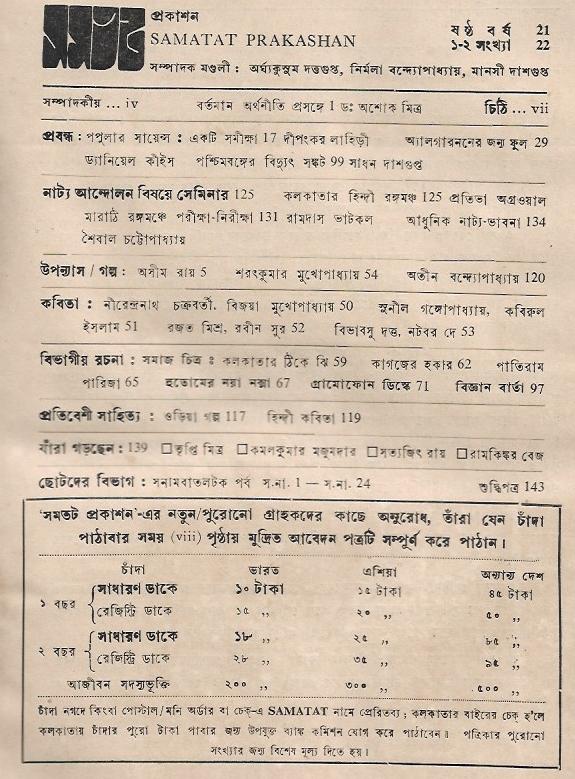 সমতট প্রকাশন
SAMATAT PRAKASHAN
ষষ্ঠ বর্ষ 21
১-২ সংখ্যা 22
সম্পাদক মণ্ডলী : অর্ঘ্যকুসুম দত্তগুপ্ত, নির্মলা বন্দ্যোপাধ্যায়, মানসী দাশগুপ্ত
সম্পাদকীয় ... iv বর্তমান অর্থনীতি প্রসঙ্গে 1 ডঃ অশোক মিত্র চিঠি ... vii
প্রবন্ধ : পপুলার সায়েন্স : একটি সমীক্ষা 17 দীপংকর লাহিড়ী অ্যালগারননের জন্য ফুল 29
ড্যানিয়েল কীইস পশ্চিমবঙ্গের বিদ্যুৎ সঙ্কট 99 সাধন দাশগুপ্ত
নাট্য আন্দোলন বিষয়ে সেমিনার 125 কলকাতার হিন্দী রঙ্গমঞ্চ 125 প্রতিভা অগ্রওয়াল
মারাঠি রঙ্গমঞ্চে পরীক্ষা-নিরীক্ষা 131 রামদাস ভাটকল আধুনিক নাট্য-ভাবনা 134
শৈবাল চট্টোপাধ্যায়
উপন্যাস / গল্প : অসীম রায় 5 শরৎকুমার মুখোপাধ্যায় 54 অতীন বন্দ্যোপাধ্যায় 120
কবিতা : নীরেন্দ্রনাথ চক্রবর্তী. বিজয়া মুখোপাধ্যায় 50 সুনীল গঙ্গোপাধ্যায়, কবিরুল
ইসলাম 51 রজত মিশ্র, রবীন সুর 52 বিভাবসু দত্ত, নটবর দে 53
বিভাগীয় রচনা : সমাজ চিত্র : কলকাতার ঠিকে ঝি 59 কাগজের হকার 62 পাতিরাম
পারিজা 65 হুতোমের নয়া নক্সা 67 গ্রামোফোন ডিস্কে 71 বিজ্ঞান বার্তা 97
প্রতিবেশী সাহিত্য : ওড়িয়া গল্প 117 হিন্দী কবিতা 119
যাঁরা গড়ছেন : 139 □তৃপ্তি মিত্র □কমলকুমার মজুমদার □সত্যজিৎ রায় □রামকিঙ্কর বেজ
ছোটদের বিভাগ : সনামবাতলটক পর্ব স.না. 1 — স.না. 24 শুদ্ধিপত্র 143
'সমতট প্রকাশন'-এর নতুন/পুরোনো গ্রাহকদের কাছে অনুরোধ, তাঁরা যেন চাঁদা
পাঠাবার সময় (viii) পৃষ্ঠায় মুদ্রিত আবেদন পত্রটি সম্পূর্ণ করে পাঠান।
চাঁদা ভারত এশিয়া অন্যান্য দেশ
১ বছর
সাধারণ ডাকে ১০ টাকা ১৫ টাকা ৪৫ টাকা
রেজিস্ট্রি ডাকে ১৫ ,, ২০ ,, ৫০ ,,
২ বছর
সাধারণ ডাকে ১৮ ,, ২৫ ,, ৮৫ ,,
রেজিস্ট্রি ডাকে ২৮ ,, ৩৫ ,, ৯৫ ,,
আজীবন সদস্যভুক্তি ২০০ ,, ৩০০ ,, ৫০০ ,,
চাঁদা নগদে কিংবা পোস্টাল/মনি অর্ডার বা চেক্-এ SAMATAT নামে প্রেরিতব্য ; কলকাতার বাইরের চেক্ হ'লে
কলকাতায় চাঁদার পুরো টাকা পাবার জন্য উপযুক্ত ব্যাঙ্ক কমিশন যোগ করে পাঠাবেন। পত্রিকার পুরোনো
সংখ্যার জন্য বিশেষ মূল্য দিতে হয়।